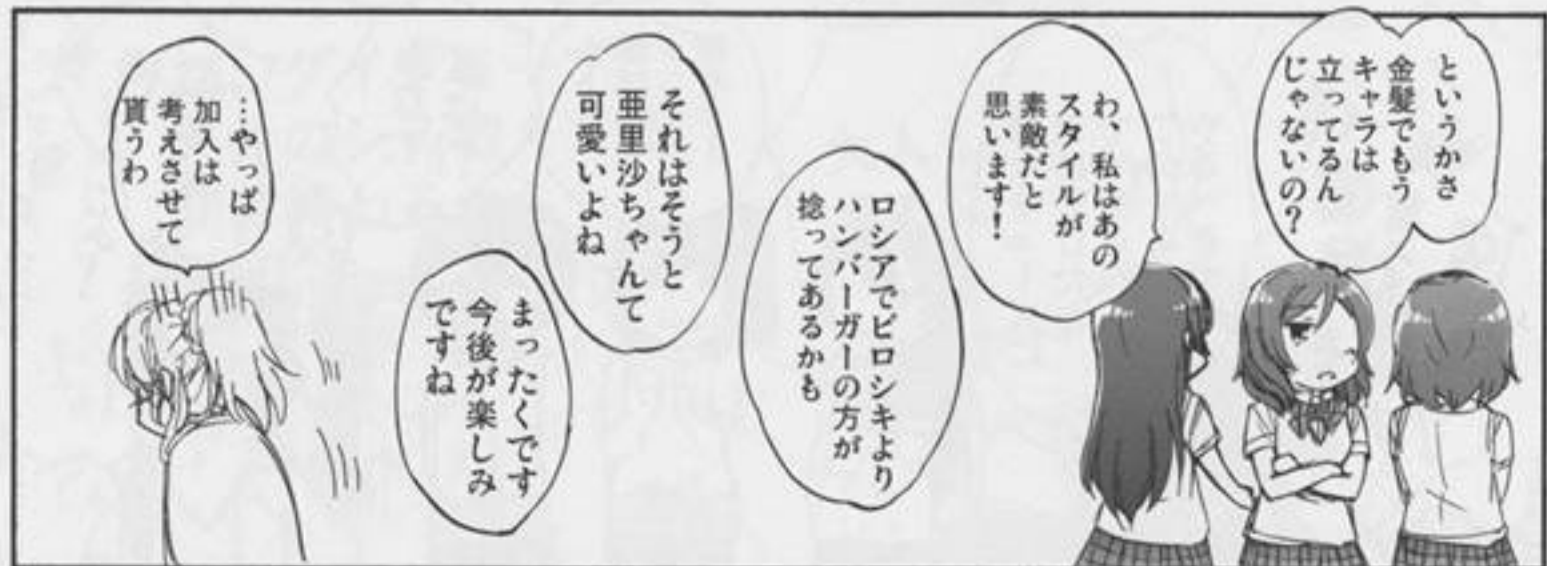 というかさ
金髪でもう
キャラは
立ってるん
じゃないの?
わ、私はあの
スタイルが
素敵だと
思います!
ロシアでピロシキより
ハンバーガーの方が
捻ってあるかも
それはそうと
亜里沙ちゃんて
可愛いよね
まったくです
今後が楽しみ
ですね
…やっぱ
加入は
考えさせて
貰うわ